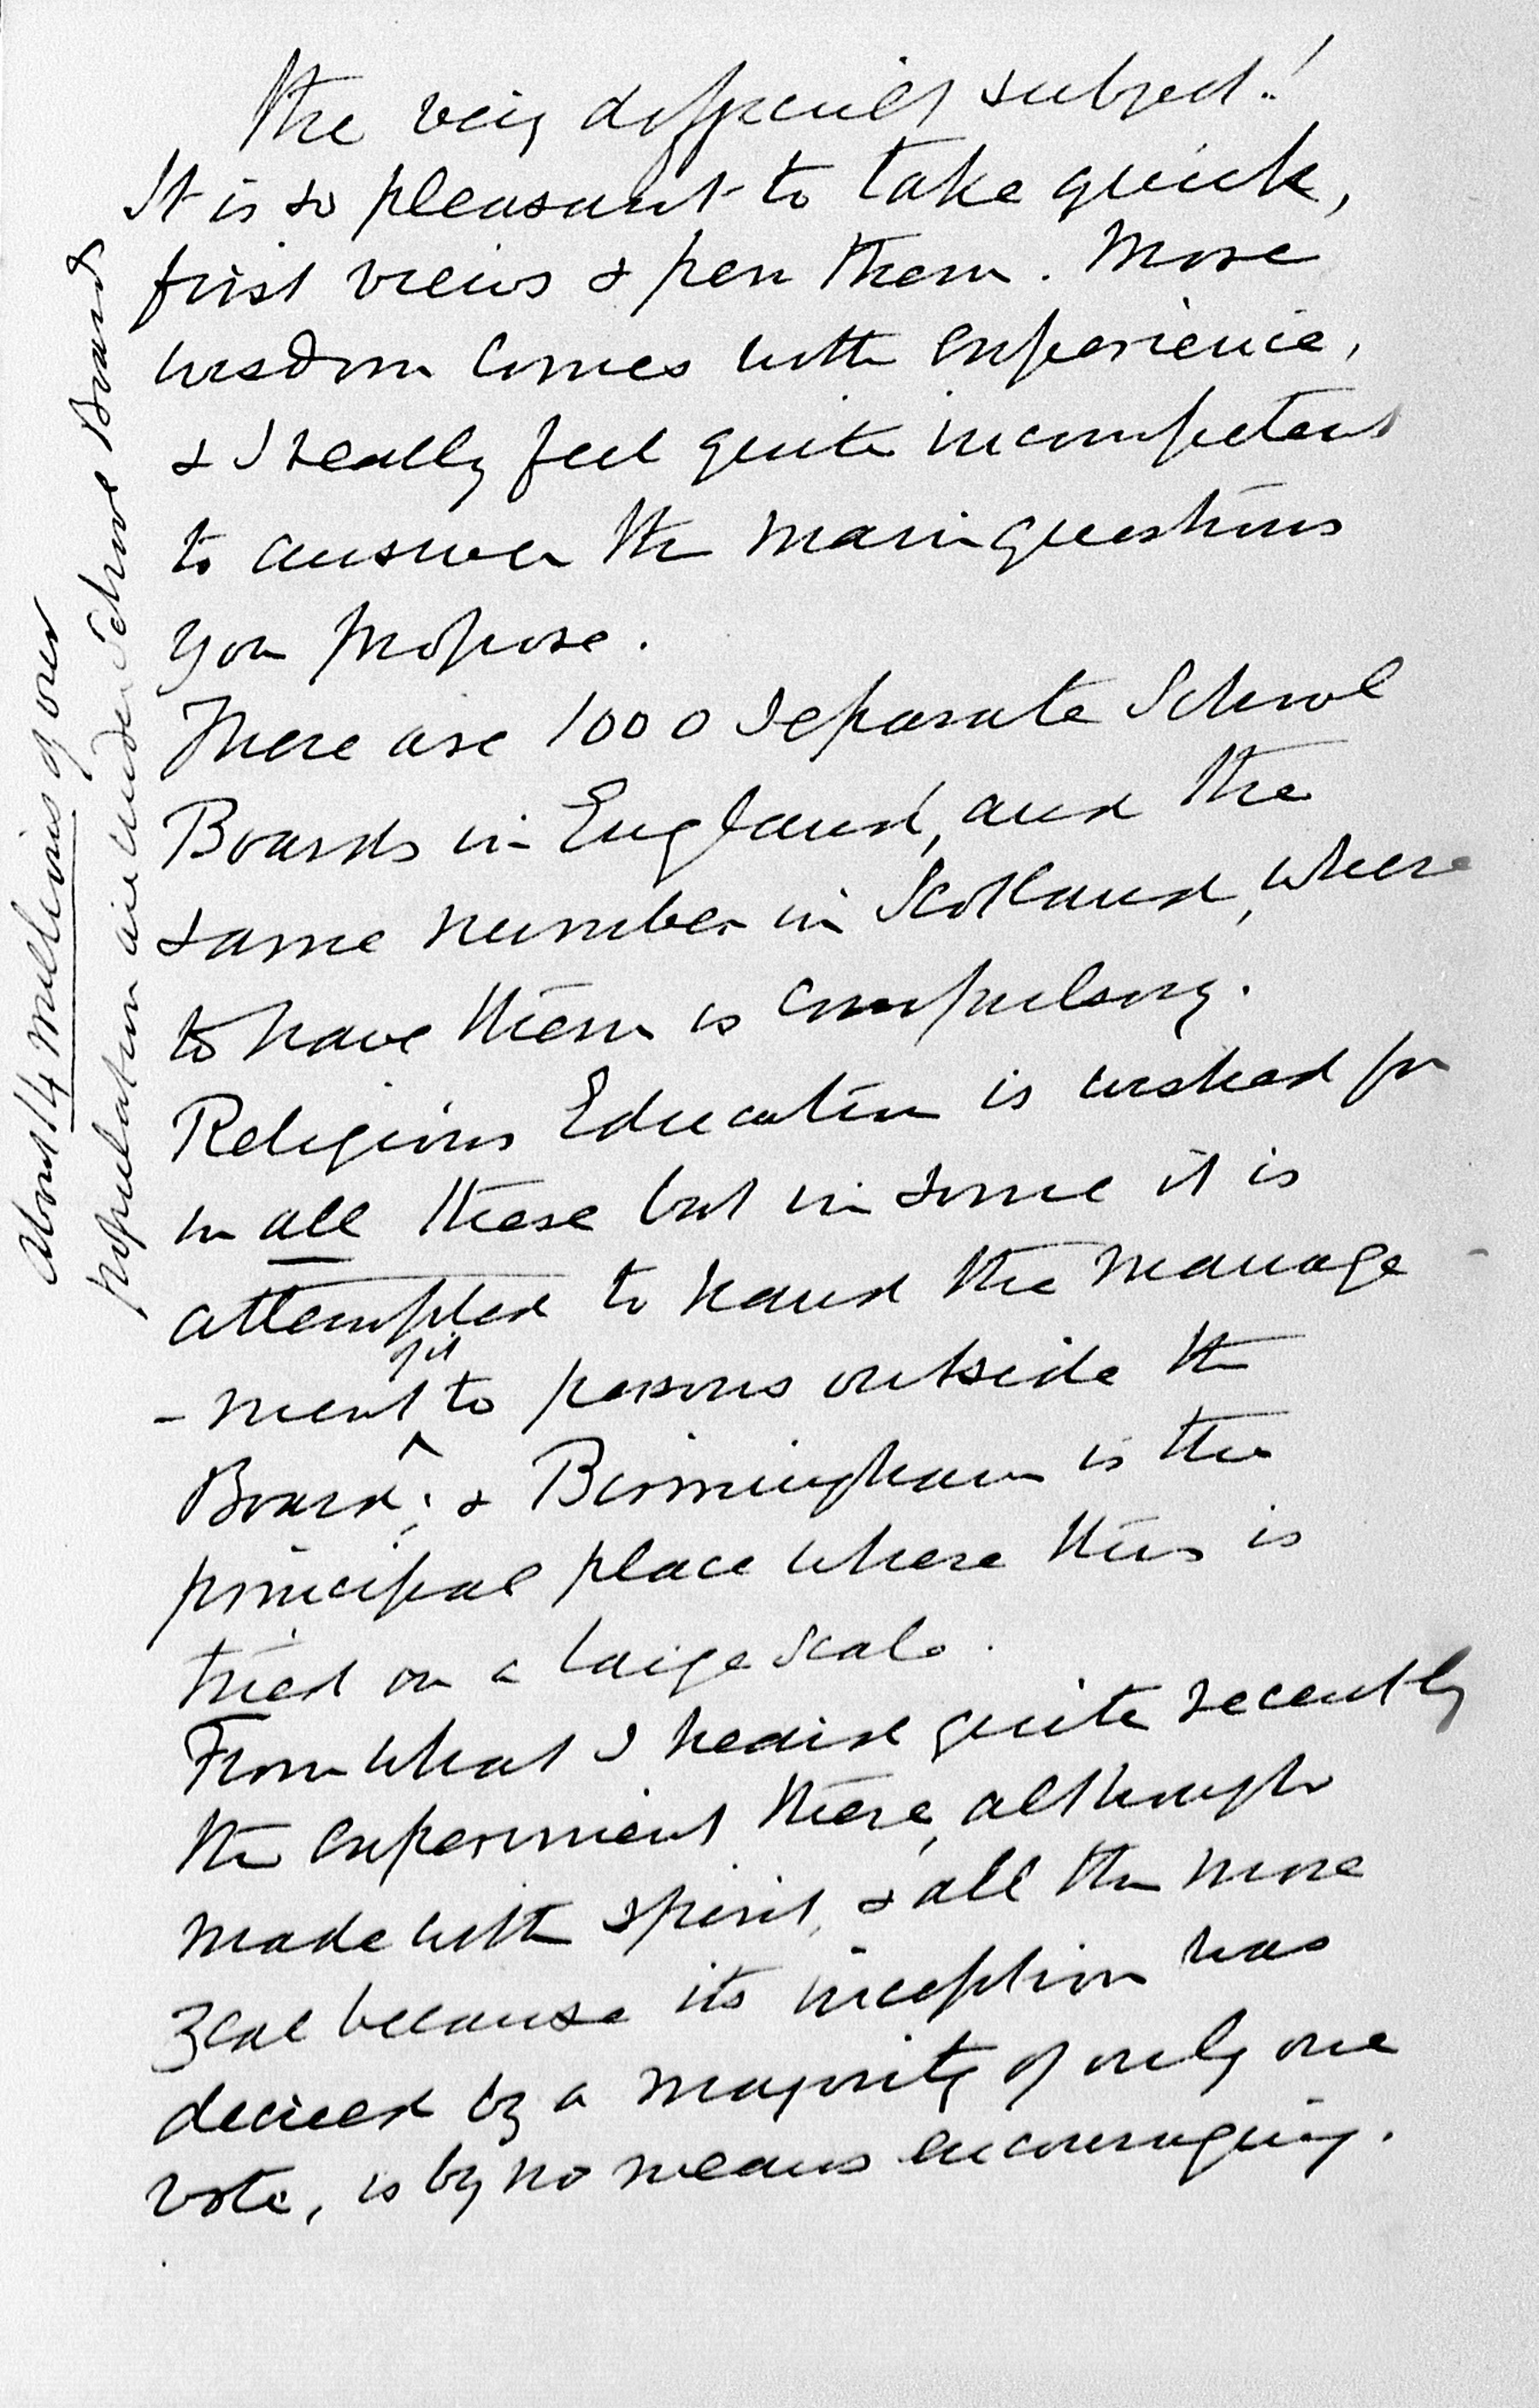 The very difficult subject!
It is so pleasant to take quick,
first views & pen them. More
wisdom comes with experience,
& I really feel quite incompetent
to answer the main questions
you propose.
There are 1000 separate School
Boards in England, and the
same number in Scotland, where
to have them is compulsory.
Religious Education is wished for
in all these but in some it is
attempted to hand the manage
-ment of it to persons outside the
Board; & Birmingham is the
principal place where this is
tried on a large scale.
From what I heard quite recently
the experiment there, although
made with spirit, & all the more
zeal because its inception was
decreed by a majority of only one
vote, is by no means encouraging.
About 14 millions of our
population are under School Boards